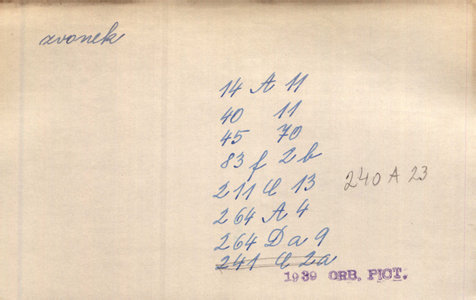 zvonek
14 A 11
40 11
45 70
83 f 2b
211 C 13
240 A 23
264 A 4
264 D a 9
241 C 2a
1939 ORB. PICT.